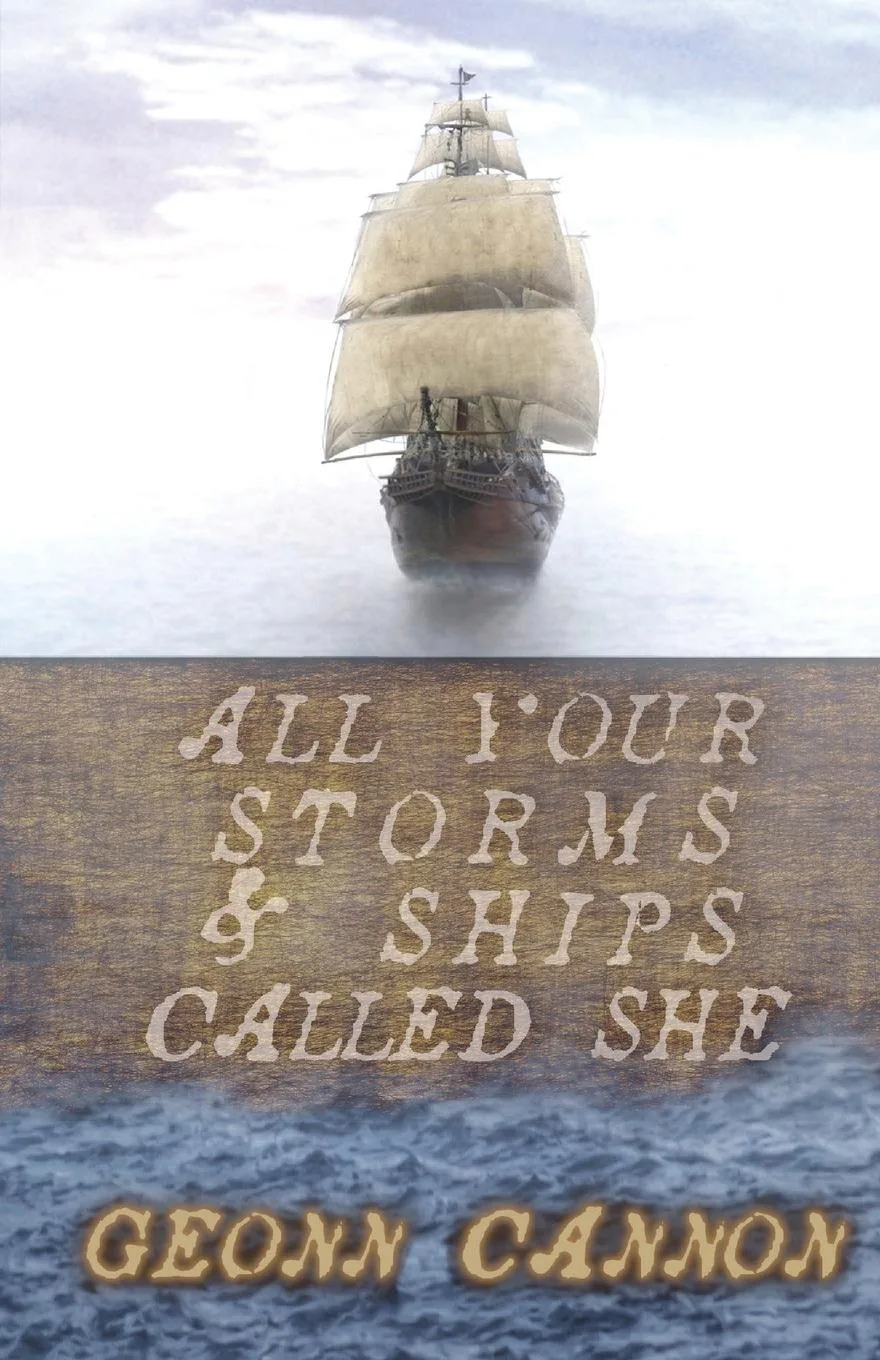 ALL YOUR
STORMS
& SHIPS
CALLED SHE
GEONN CANNON